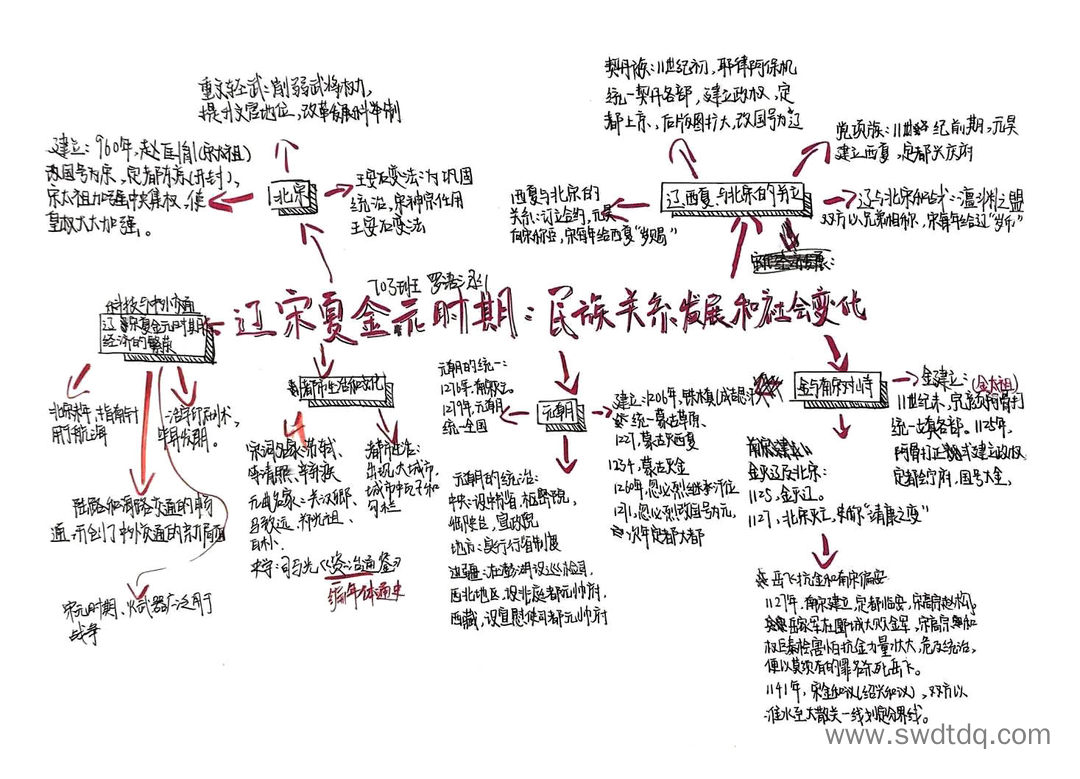 重文轻武：削弱武将权力，
提升文官地位，改革发展科举制
建立：960年，赵匡胤(宋太祖)
改国号为宋，定都东京(开封)，
宋太祖加强中央集权，使
皇权大大加强。
北宋
王安石变法：为巩固
统治，宋神宗任用
王安石变法
契丹族：11世纪初，耶律阿保机
统一契丹各部，建立政权，定
都上京，后版图扩大，改国号为辽
党项族：11世纪前期，元昊
建立西夏，定都兴庆府
辽、西夏与北宋的并立
西夏与北宋的
关系：订立合约，元昊
向宋称臣，宋每年给西夏“岁赐”
辽与北宋和战：澶渊之盟
双方以兄弟相称，宋每年给辽“岁币”
703班
辽宋夏金元时期：民族关系发展和社会变化
科技与中外交通
辽宋夏金元时期
经济的繁荣
北宋末年，指南针
用于航海
活字印刷术，
毕昇发明。
陆路和海路交通的畅
通，开创了中外交通的新局面
宋元时期，火武器广泛用于
战争
都市生活和文化
宋词名家：苏轼、
李清照、辛弃疾
元曲名家：关汉卿、
马致远、郑光祖、
白朴、
史学：司马光《资治通鉴》
编年体通史
都市生活：
出现大城市，
城市中瓦子和
勾栏
元朝的统一：
1276年，南宋亡。
1279年，元朝
统一全国
元朝
建立：1206年，铁木真(成吉思汗)
统一蒙古草原、
1227，蒙古灭西夏
1234，蒙古灭金
1260年，忽必烈继承汗位
1271，忽必烈改国号为元，
次年定都大都
元朝的统治：
中央：设中书省，枢密院，
御史台，宣政院
地方：实行行省制度
边疆：在澎湖设巡检司，
西北地区，设北庭都元帅府，
西藏，设宣慰使司都元帅府
金与南宋对峙
金建立：(金太祖)
11世纪末，完颜阿骨打
统一女真各部。1125年，
阿骨打正式建立政权
定都会宁府，国号大金，
金灭辽及北宋：
1125，金灭辽。
1127，北宋灭亡，史称“靖康之变”
岳飞抗金和南宋偏安
1127年，南宋建立，定都临安，宋高宗赵构，
岳家军在郾城大败金军，宋高宗和
权臣秦桧害怕抗金力量壮大，危及统治，
便以莫须有的罪名杀死岳飞。
1141年，宋金和议(绍兴和议)，双方以
淮水至大散关一线划定分界线。
www.swdtdq.com